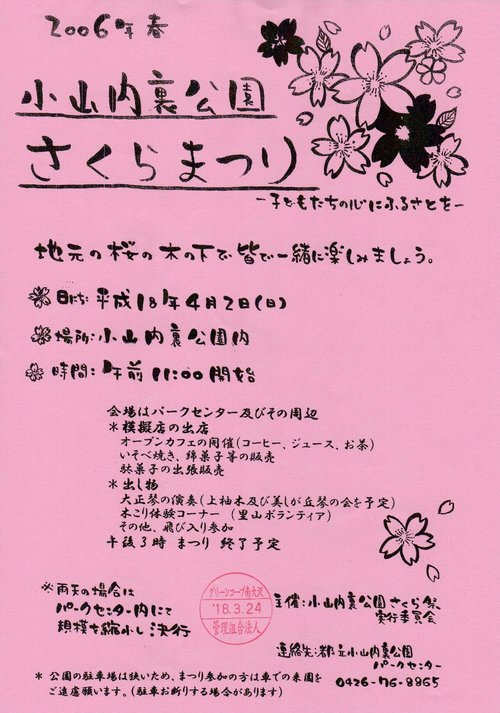 2006年 春
小山内裏公園
さくらまつり
―子どもたちの心にふるさとを―
地元の桜の木の下で皆で一緒に楽しみましょう。
日にち:平成18年4月2日(日)
場所:小山内裏公園内
時間:午前 11:00開始
会場はパークセンター及びその周辺
*模擬店の出店
オープンカフェの開催(コーヒー、ジュース、お茶)
いそべ焼き、綿菓子等の販売
駄菓子の出張販売
*出し物
大正琴の演奏(上柚木及び美しが丘琴の会を予定)
木こり体験コーナー (里山ボランティア)
その他、飛び入り参加
午後3時 まつり 終了予定
※雨天の場合は
パークセンター内にて
規模を縮小し決行
グリーンコープ南大沢
'18.3.24
管理組合法人
主催:小山内裏公園さくら祭
実行委員会
連絡先:都立小山内裏公園
パークセンター
0426-76-8865
* 公園の駐車場は狭いため、まつり参加の方は車での来園を
ご遠慮願います。(駐車お断りする場合があります)